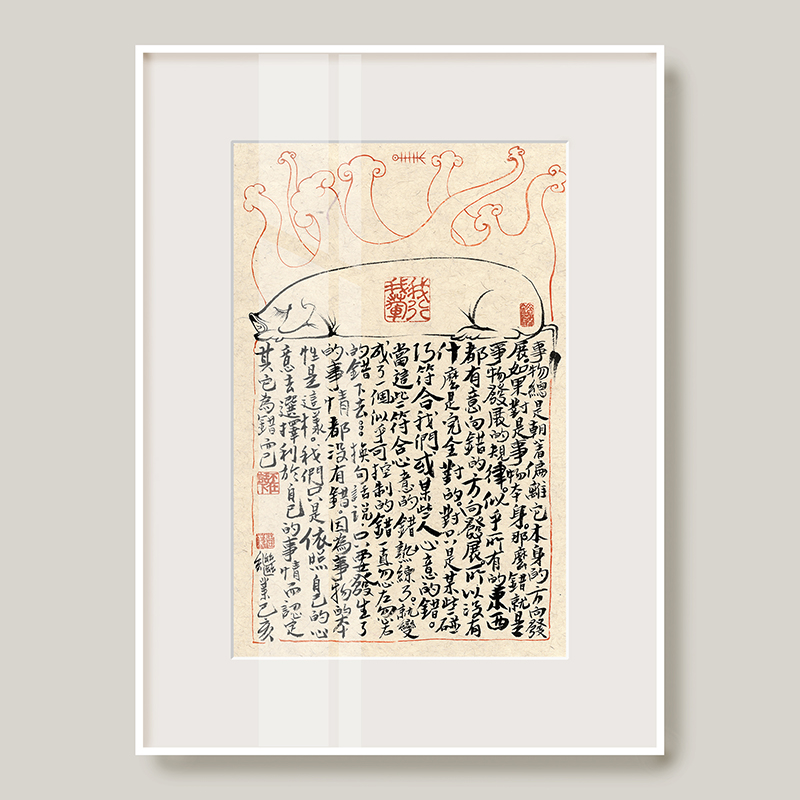 事物總是朝着偏離它本身的方向發
展。如果對是事物本身。那麼錯就是
事物發展的規律。似乎所有的東西
都有意向錯的方向發展。所以没有
什麼是完全對的。對只是某些碰
巧符合我們或某些人心意的錯。
當這些符合心意的錯熟練了。就變
成了一個似乎可控制的錯一直忽左忽右
的錯下去… 換句話說。只要發生了
的事情都没有錯。因為事物的本
性是這樣。我們只是依照自己的心
意去選擇利於自己的事情而認定
其它為錯而已
繼業己亥